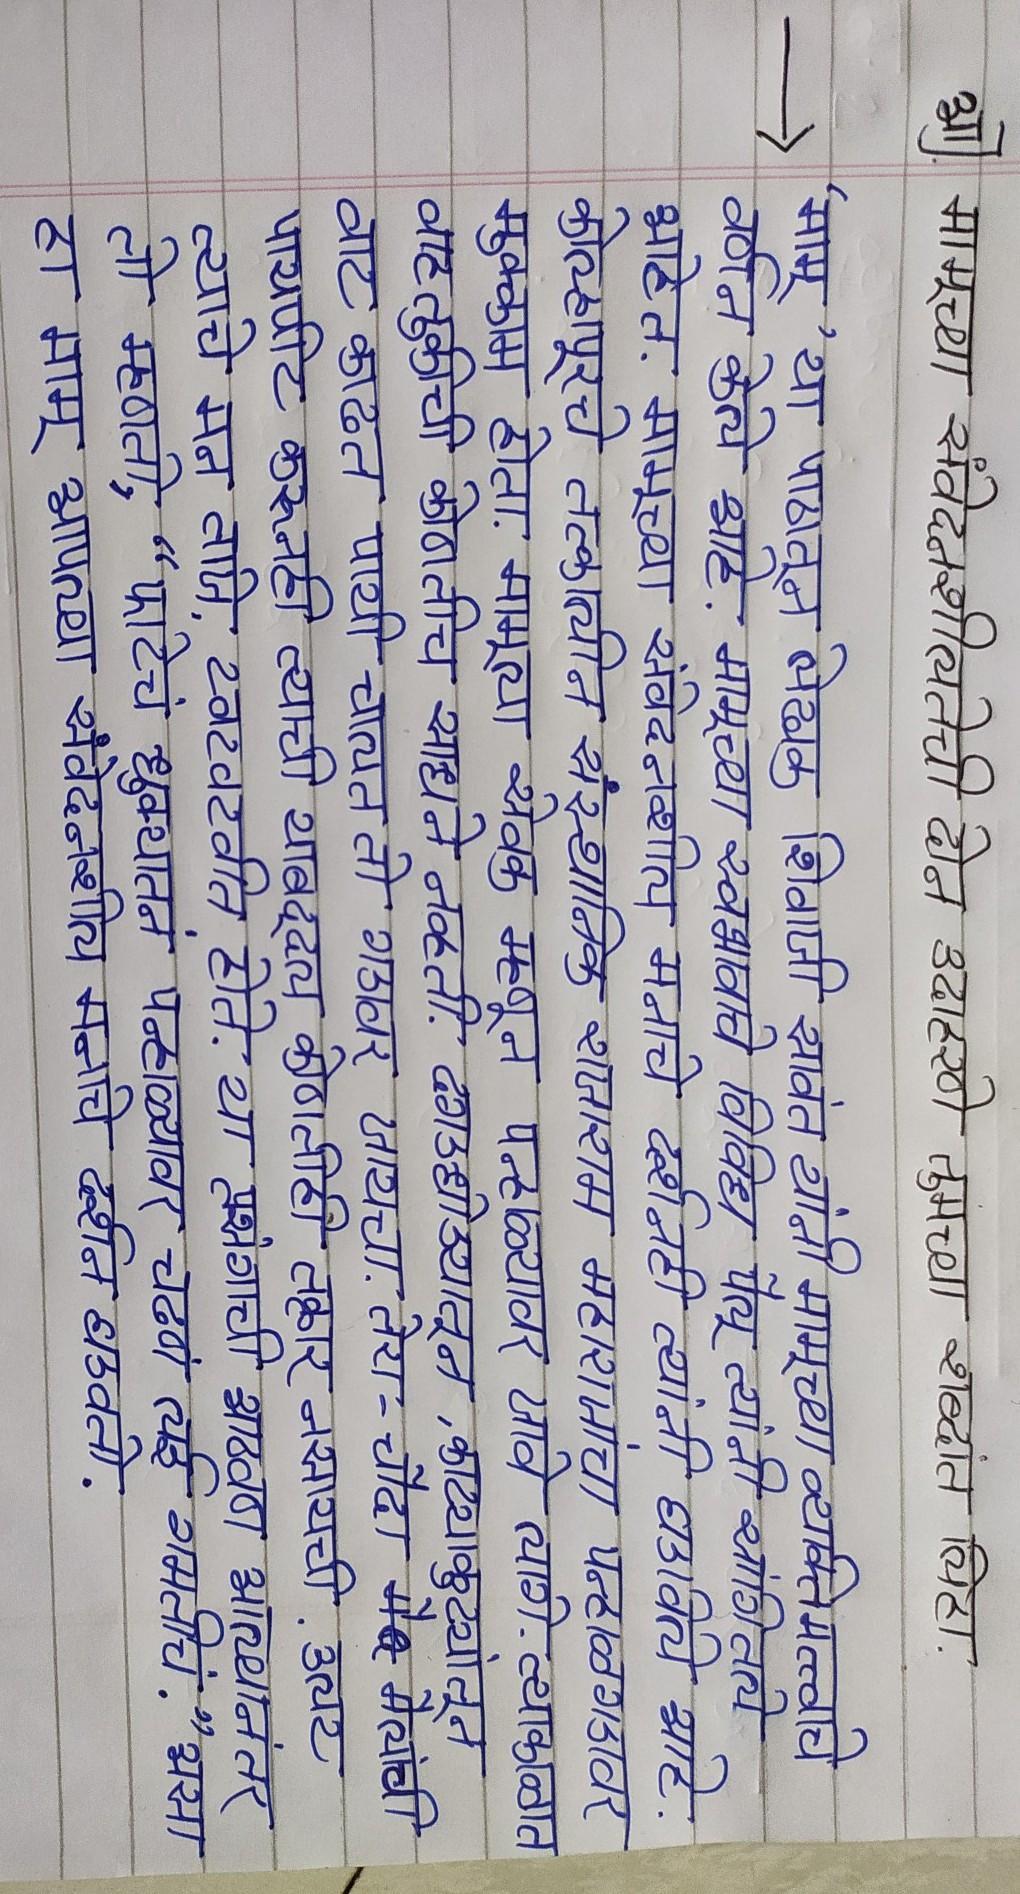 आ]. मामूच्या संवेदनशीलतेची दोन उदाहरणे तुमच्या शब्दांत लिहा.
→ 'मामू' या पाठातून लेखक शिवाजी सावंत यांनी मामूच्या व्यक्तिमत्त्वाचे
वर्णन केले आहे. मामूच्या स्वभावाचे विविध पैलू त्यांनी सांगितले
आहेत. मामूच्या संवेदनशील मनाचे दर्शनही त्यांनी घडविले आहे.
कोल्हापूरचे तत्कालीन संस्थानिक राजाराम महाराजांचा पन्हाळगडावर
मुक्काम होता. मामूला सेवक म्हणून पन्हाळ्यावर जावे लागे. त्याकाळात
वाहतुकीची कोणतीच साधने नव्हती. काऊधोंड्यातून, काट्याकुट्यांतून
वाट काढत पायी चालत तो गडावर जायचा. तेरा-चौदा मैलांची
पायपीट करूनही त्याची याबद्दल कोणतीही तक्रार नसायची. उलट
त्याचे मन ताजे, टवटवीत होते. या प्रसंगाची आठवण आल्यानंतर
तो म्हणतो, "फाटेचं धुक्यातनं पन्हाळ्यावर चढणं लई गमतीचं." अशा
हा मामू आपल्या संवेदनशील मनाचे दर्शन घडवतो.